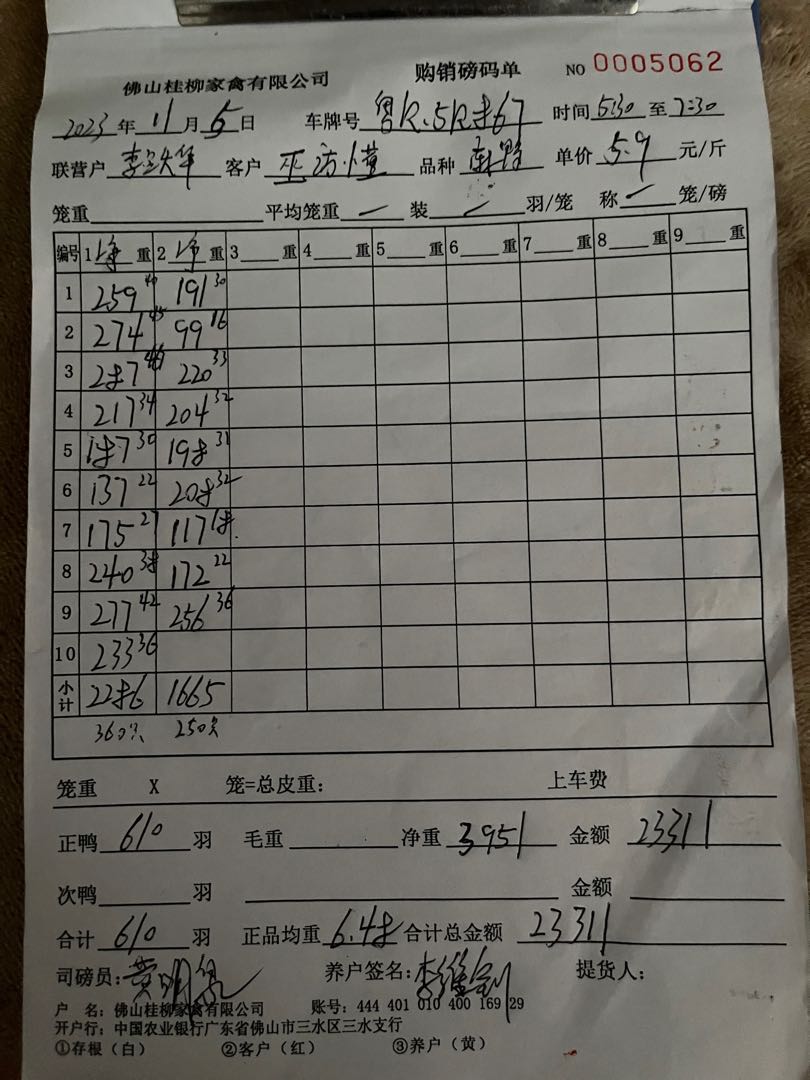 佛山桂柳家禽有限公司 购销磅码单 NO 0005062
2023 年 11 月 5 日 车牌号 粤R.5R867 时间 5:30 至 7:30
联营户 李 华 客户 巫 品种 单价 5.9 元/斤
笼重 平均笼重 — 装 — 羽/笼 称 — 笼/磅
编号 1 净 重 2 净 重 3 重 4 重 5 重 6 重 7 重 8 重 9 重
1 259 40 191 30
2 274 45 99 16
3 287 46 220 33
4 217 34 204 32
5 187 30 198 31
6 137 22 208 32
7 175 27 117 18
8 240 38 172 22
9 277 42 256 36
10 233 36
小计 2286 1665
360只 250只
笼重 X 笼=总皮重: 上车费
正鸭 610 羽 毛重 净重 3951 金额 23311
次鸭 羽 金额
合计 610 羽 正品均重 6.48 合计总金额 23311
司磅员: 黄明 养户签名: 李 提货人:
户 名: 佛山桂柳家禽有限公司 账号: 444 401 010 400 169 29
开户行: 中国农业银行广东省佛山市三水区三水支行
①存根(白) ②客户(红) ③养户(黄)